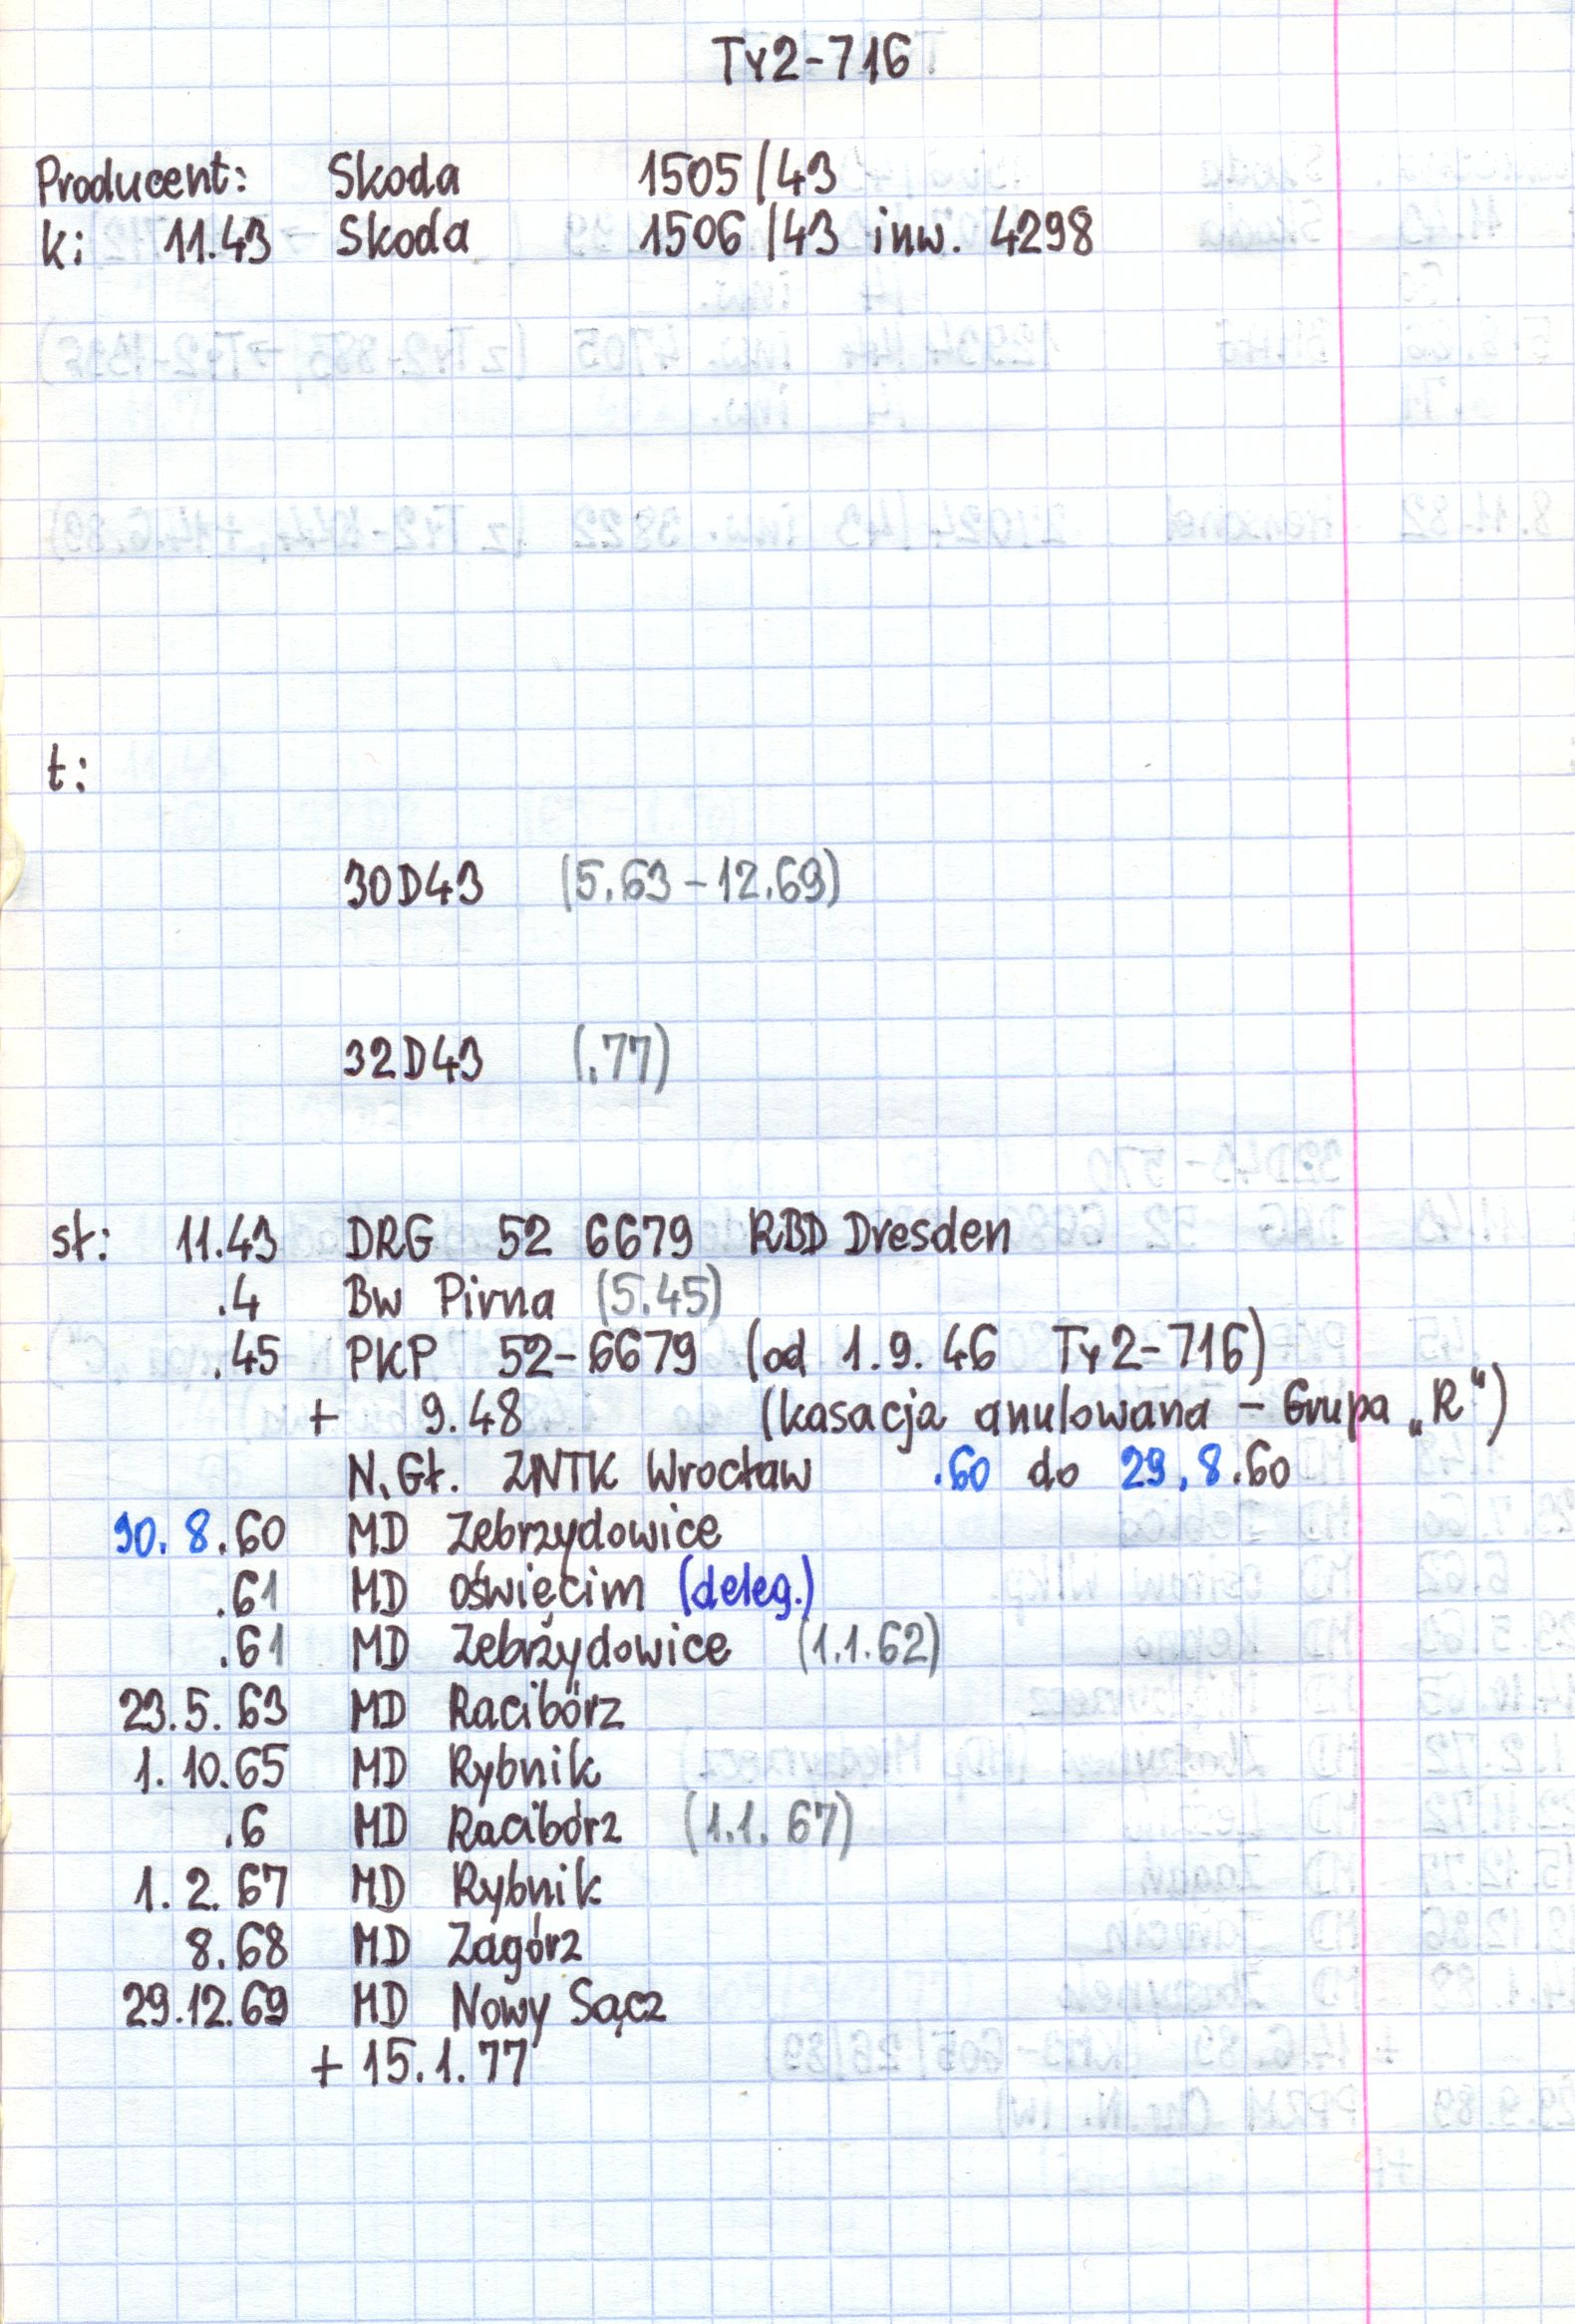 Ty2-716
Producent: Skoda 1505/43
k: 11.43 Skoda 1506/43 inw. 4298
t:
30D43 (5.63-12.69)
32D43 (.77)
st: 11.43 DRG 52 6679 RBD Dresden
.4 Bw Pirna (5.45)
.45 PKP 52-6679 (od 1.9.46 Ty2-716)
+ 9.48 (kasacja anulowana - Grupa „R")
N.Gł. ZNTK Wrocław .60 do 29.8.60
30.8.60 MD Zebrzydowice
.61 MD Oświęcim (deleg.)
.61 MD Zebrzydowice (1.1.62)
23.5.63 MD Racibórz
1.10.65 MD Rybnik
.6 MD Racibórz (1.1.67)
1.2.67 MD Rybnik
8.68 MD Zagórz
29.12.69 MD Nowy Sącz
+ 15.1.77